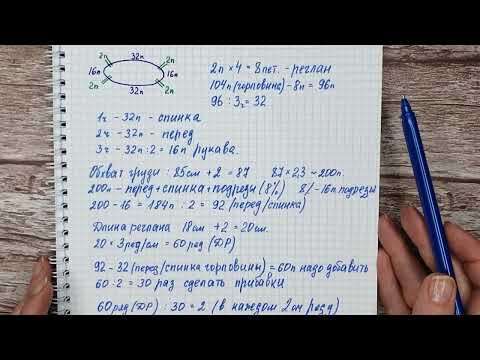 2п 32п 2п
16п 16п
2п 32п 2п
2п × 4 = 8пет. - реглан
104п (горловина) - 8п = 96п
96 : 3ч = 32
1ч - 32п - спинка
2ч - 32п - перед
3ч - 32п : 2 = 16п рукава.
Обхват груди : 85см + 2 = 87 87 × 2,3 = 200п.
200п - перед + спинка + подрезы (8%) 8% - 16п подрезы
200 - 16 = 184п : 2 = 92 /перед/спинка)
Длина реглана 18см + 2 = 20см.
20 × 3ряд/см = 60ряд (ДР)
92 - 32 (перед/спинка горловины) = 60п надо добавить
60 : 2 = 30 раз сделать прибавки
60ряд (ДР) : 30 = 2 (в каждом 2ом ряду)